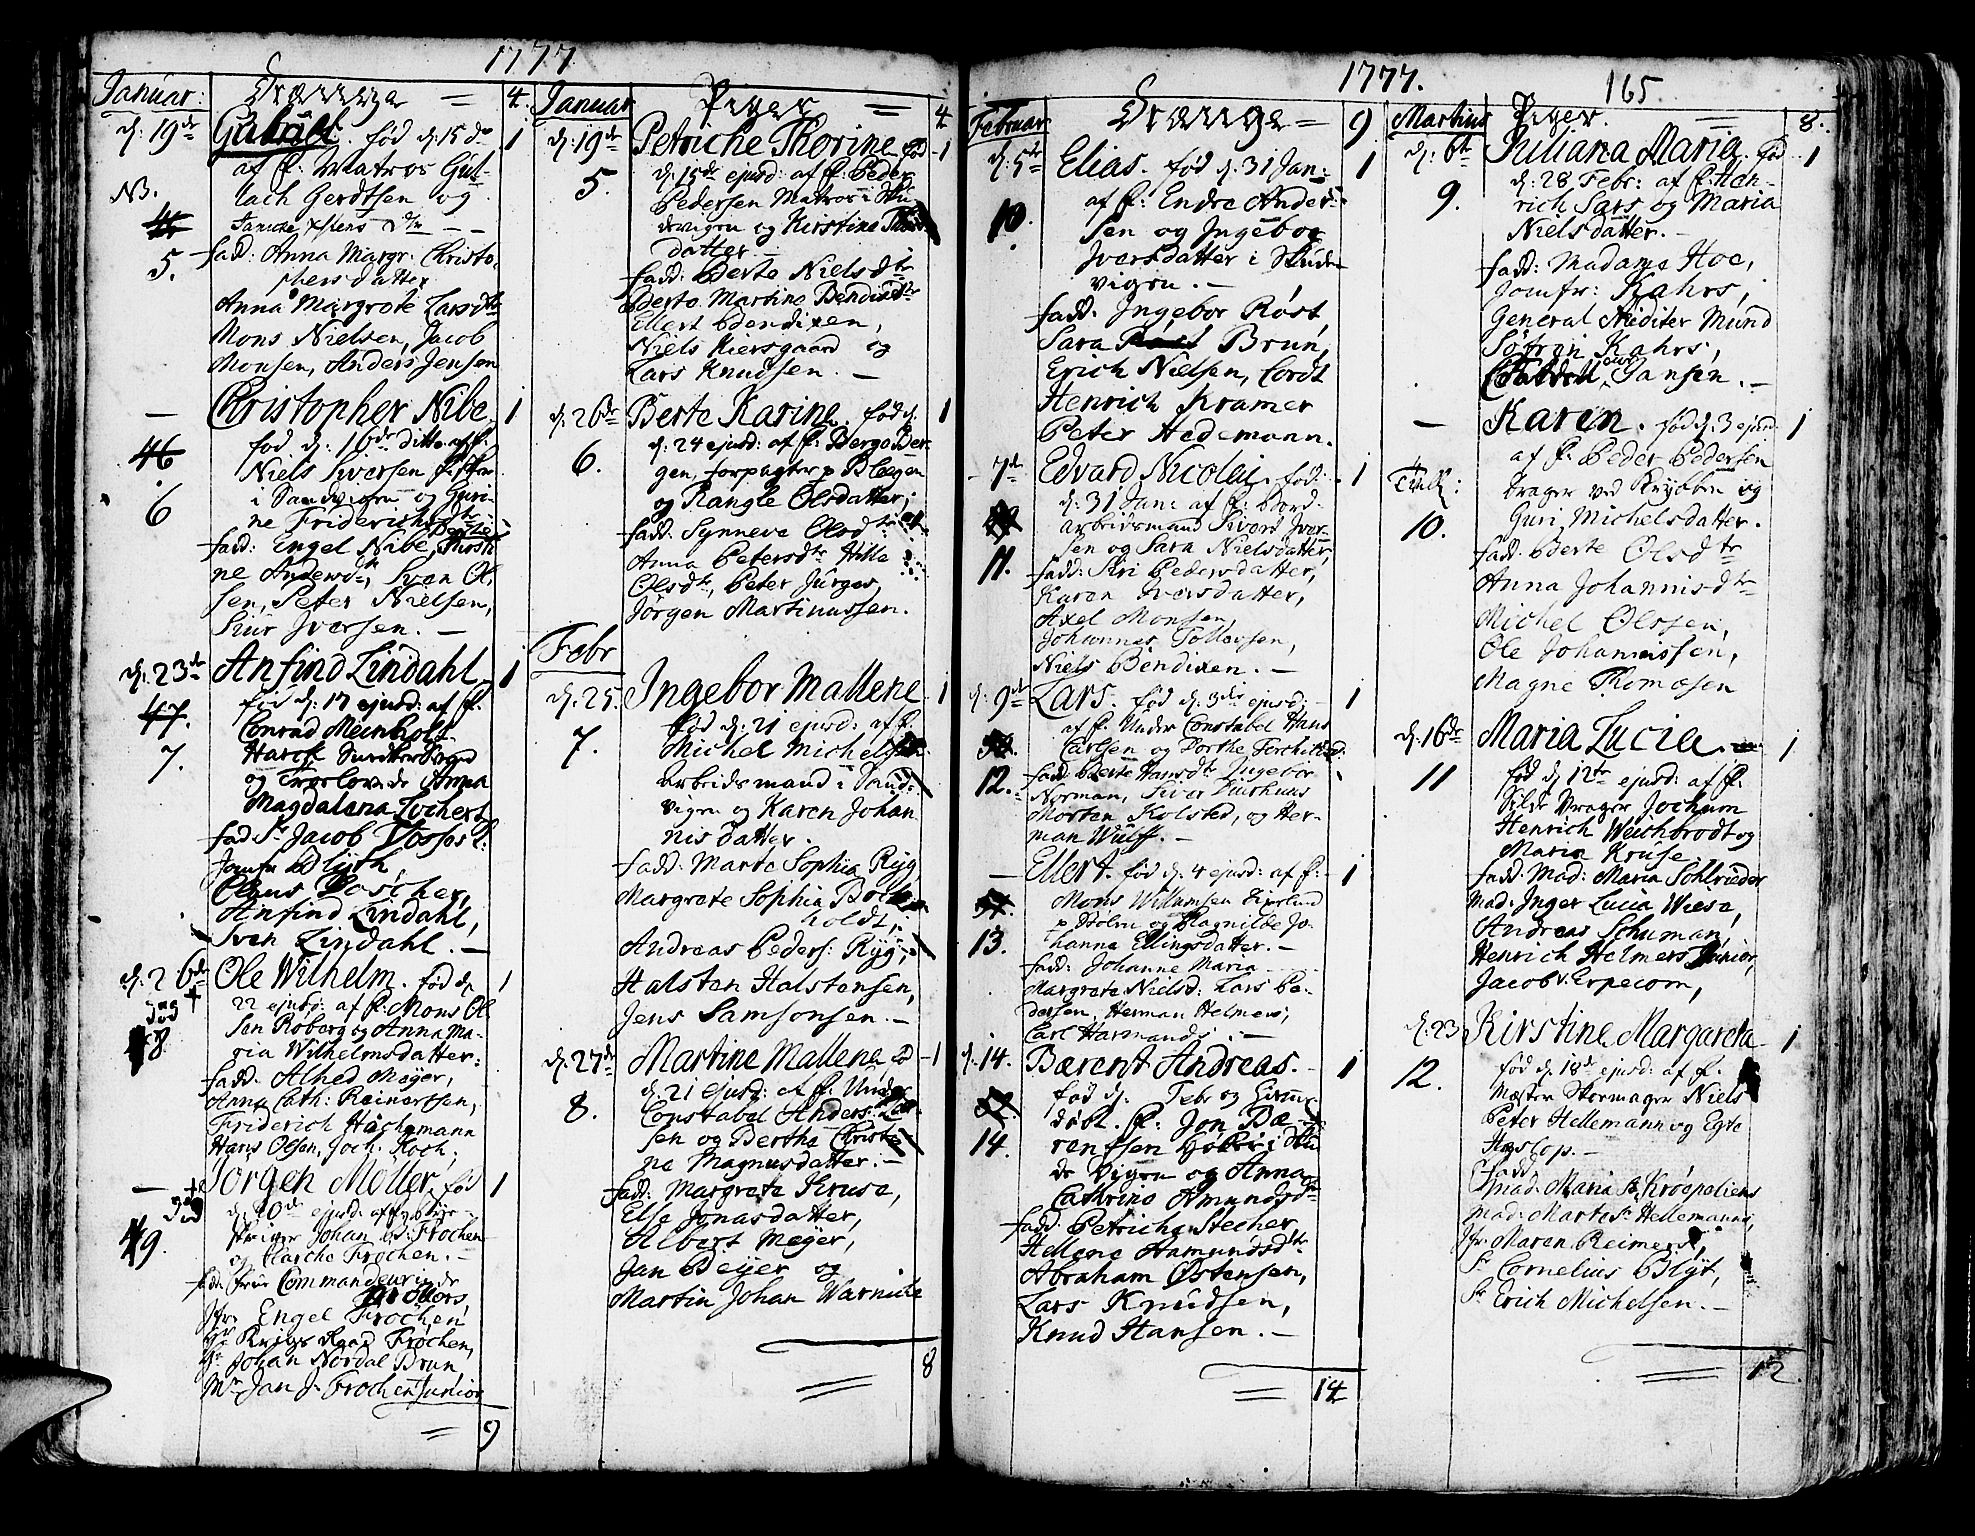 1777
Januar: Drænge = 4.
d: 19de fød d. 15de 1
af f. Matros Gul-
NB. lach Gerdtsen og
5. fadd: Anna Margr: Christo-
phersdatter
Anna Margrete Larsdtr
Mons Nielsen, Jacob
Monsen, Anders Jensen
— Christopher Nibe 1
46 fød d. 16de ditto af f.
Niels Iversen
i Sandvigen og Guri-
6 ne Friderichsdtr
fadd: Engel Nibe,
ne Andersdtr, Sven Ol-
sen, Peter Nielsen,
Siur Iversen. —
d. 23de Anfind Lindahl 1
47. fød d. 17 ejusd: af f.
Conrad Meinholt
7.
og Troelovede Anna
Magdalena
fad Sr Jacob
Jomfr Blyth
Claus
Anfind Lindahl,
Sven Lindahl. —
d. 26de Ole Wilhelm. fød d. 1
død + 22 ejusd: af f. Mons Ol-
sen Roberg og Anna Ma-
8 ria Wilhelmsdatter:
fadd. Alhed Meyer,
Anna Cath: Reinertsen,
Friderich Hachemann
Hans Olsen, Joch. Koch,
— Jørgen Møller, fød 1
+ død d. 20de ejusd: af f.
Johan Frochen
9. og Frochen. —
fadd. Frue Commandeurinde
Mors,
Jfr. Engel Frochen
Hr Krigs Raad Frochen,
Hr Johan Nordal Brun,
Mr Jan J. Frochen Junior
= 9
Januar Piger = 4
d: 19de Petriche Thorine fød 1
5. d. 15de ejusd: af f. Peder
Pedersen Matros i Sku-
devigen og Kirstine
datter. —
fadd: Berte Nielsdtr
Berte Martine Bendixdtr
Ellert Bendixen,
Niels Kiersgaard og
Lars Knudsen. —
d. 26de Berte Karine. fød d. 1
6. d. 24 ejusd: af f. Berge Ber-
gen, forpagter p Bleegen
og Rangle Olsdatter.
fadd: Synneve Olsdtr
Anna Petersdtr Hille
Olsdtr, Peter Jürges,
Jørgen Martinussen.
Febr
d. 25. Ingebor Mallene 1
7. fød d. 21 ejusd: af f.
Michel Michelsen
arbeidsmand i Sand-
vigen og Karen Johan
nis datter.
fadd: Marte Sophia Ryg
Margrete Sophia
holdt,
Andreas Peders: Ryg,
Halsten Halstensen,
Jens Samsonsen. —
d. 27de Martine Mallene, fød 1
8. d. 21 ejusd: af f. Under
Constabel Anders
sen og Bertha Christi-
ne Magnusdatter. —
fadd: Margrete Kruse,
Else Jonasdatter,
Albert Meyer,
Jan Beyer og
Martin Johan Warnicke
8
1777. 165.
Februar Drænge = 9
d: 5te Elias. fød d. 31 Jan: 1
10. af f. Endre Ander-
sen og Ingebor
Iversdatter i Skude-
vigen. —
fadd. Ingebor Røst,
Sara Brun,
Erich Nielsen, Cordt
Henrich Kramer
Peter Hedemann.
7de Edvard Nicolai. fød 1
d. 31 Jan: af f. Bord-
arbeidsmand Ivers Iver-
sen og Sara Nielsdatter,
11. fadd: Siri Pedersdatter,
Karen Iversdatter,
Axel Monsen,
Johannes Tollevsen,
Niels Bendixen. —
d. 9de Lars. fød d. 3de ejusd: 1
af f. Under Constabel Hans
Carlsen og Dorthe
12. fadd Berte Hansdtr Ingebor
Norman, Iver
Morten Kolsted, og Her-
man Wulff. —
— Ellert. fød d. 4 ejusd: af f. 1
Mons Willumsen
p Holm og Magnilde Jo-
13. hanna Ellingsdatter. —
fadd: Johanne Maria
Margrete Nielsd: Lars Pe-
dersen, Herman Helmers,
Carl Harmands. —
d. 14. Bærent Andreas. 1
fød d. Febr og
døbt. f. Jon Bæ-
14. rentsen i Sku-
de vigen og Anna
Cathrina Amundsdtr
fadd: Petriche Stecher,
Hellene Hamundsdtr
Abraham Østensen,
Lars Knudsen,
Knud Hansen. —
= 14
Martius Piger. = 8.
d: 6te Juliana Maria. fød 1
9. d. 28 Febr: af f. Hen-
rich Sars og Maria
Nielsdatter. —
fadd: Madame Hoe,
Jomfr: Kahrs,
General Auditer Mund
Søfren Kahrs,
Jansen. —
— Karen. fød d. 3 ejusd 1
af f. Peder Pedersen
Drager ved Brÿgben og
10. Guri Michelsdatter.
fadd. Berte Olsdtr
Anna Johannisdtr
Michel Olssen,
Ole Johannissen,
Magne Thomæsen
d. 16de Maria Lucia. 1
11 fød d. 12te ejusd: af f.
Silde Vrager Jochum
Henrich Weichbrodt og
Maria Kruse.
fadd. Mad: Maria Schlrieder
Mad: Inger Lucia Wiese,
Andreas Schuman,
Henrich Helmers Junior,
Jacob v. Erpecom,
d. 23 Kirstine Margareta 1
12. fød d. 18de ejusd: af f.
Mæster Skormager Niels
Peter Hellemann og Egte
Haslop. —
fadd.
Mad: Maria Sl. Krøepeliens
Mad: Marte Sl. Hellemanns,
Jfr. Maren Reimers,
Sr Cornelius Blyt,
Sr Erich Michelsen. —
= 12.